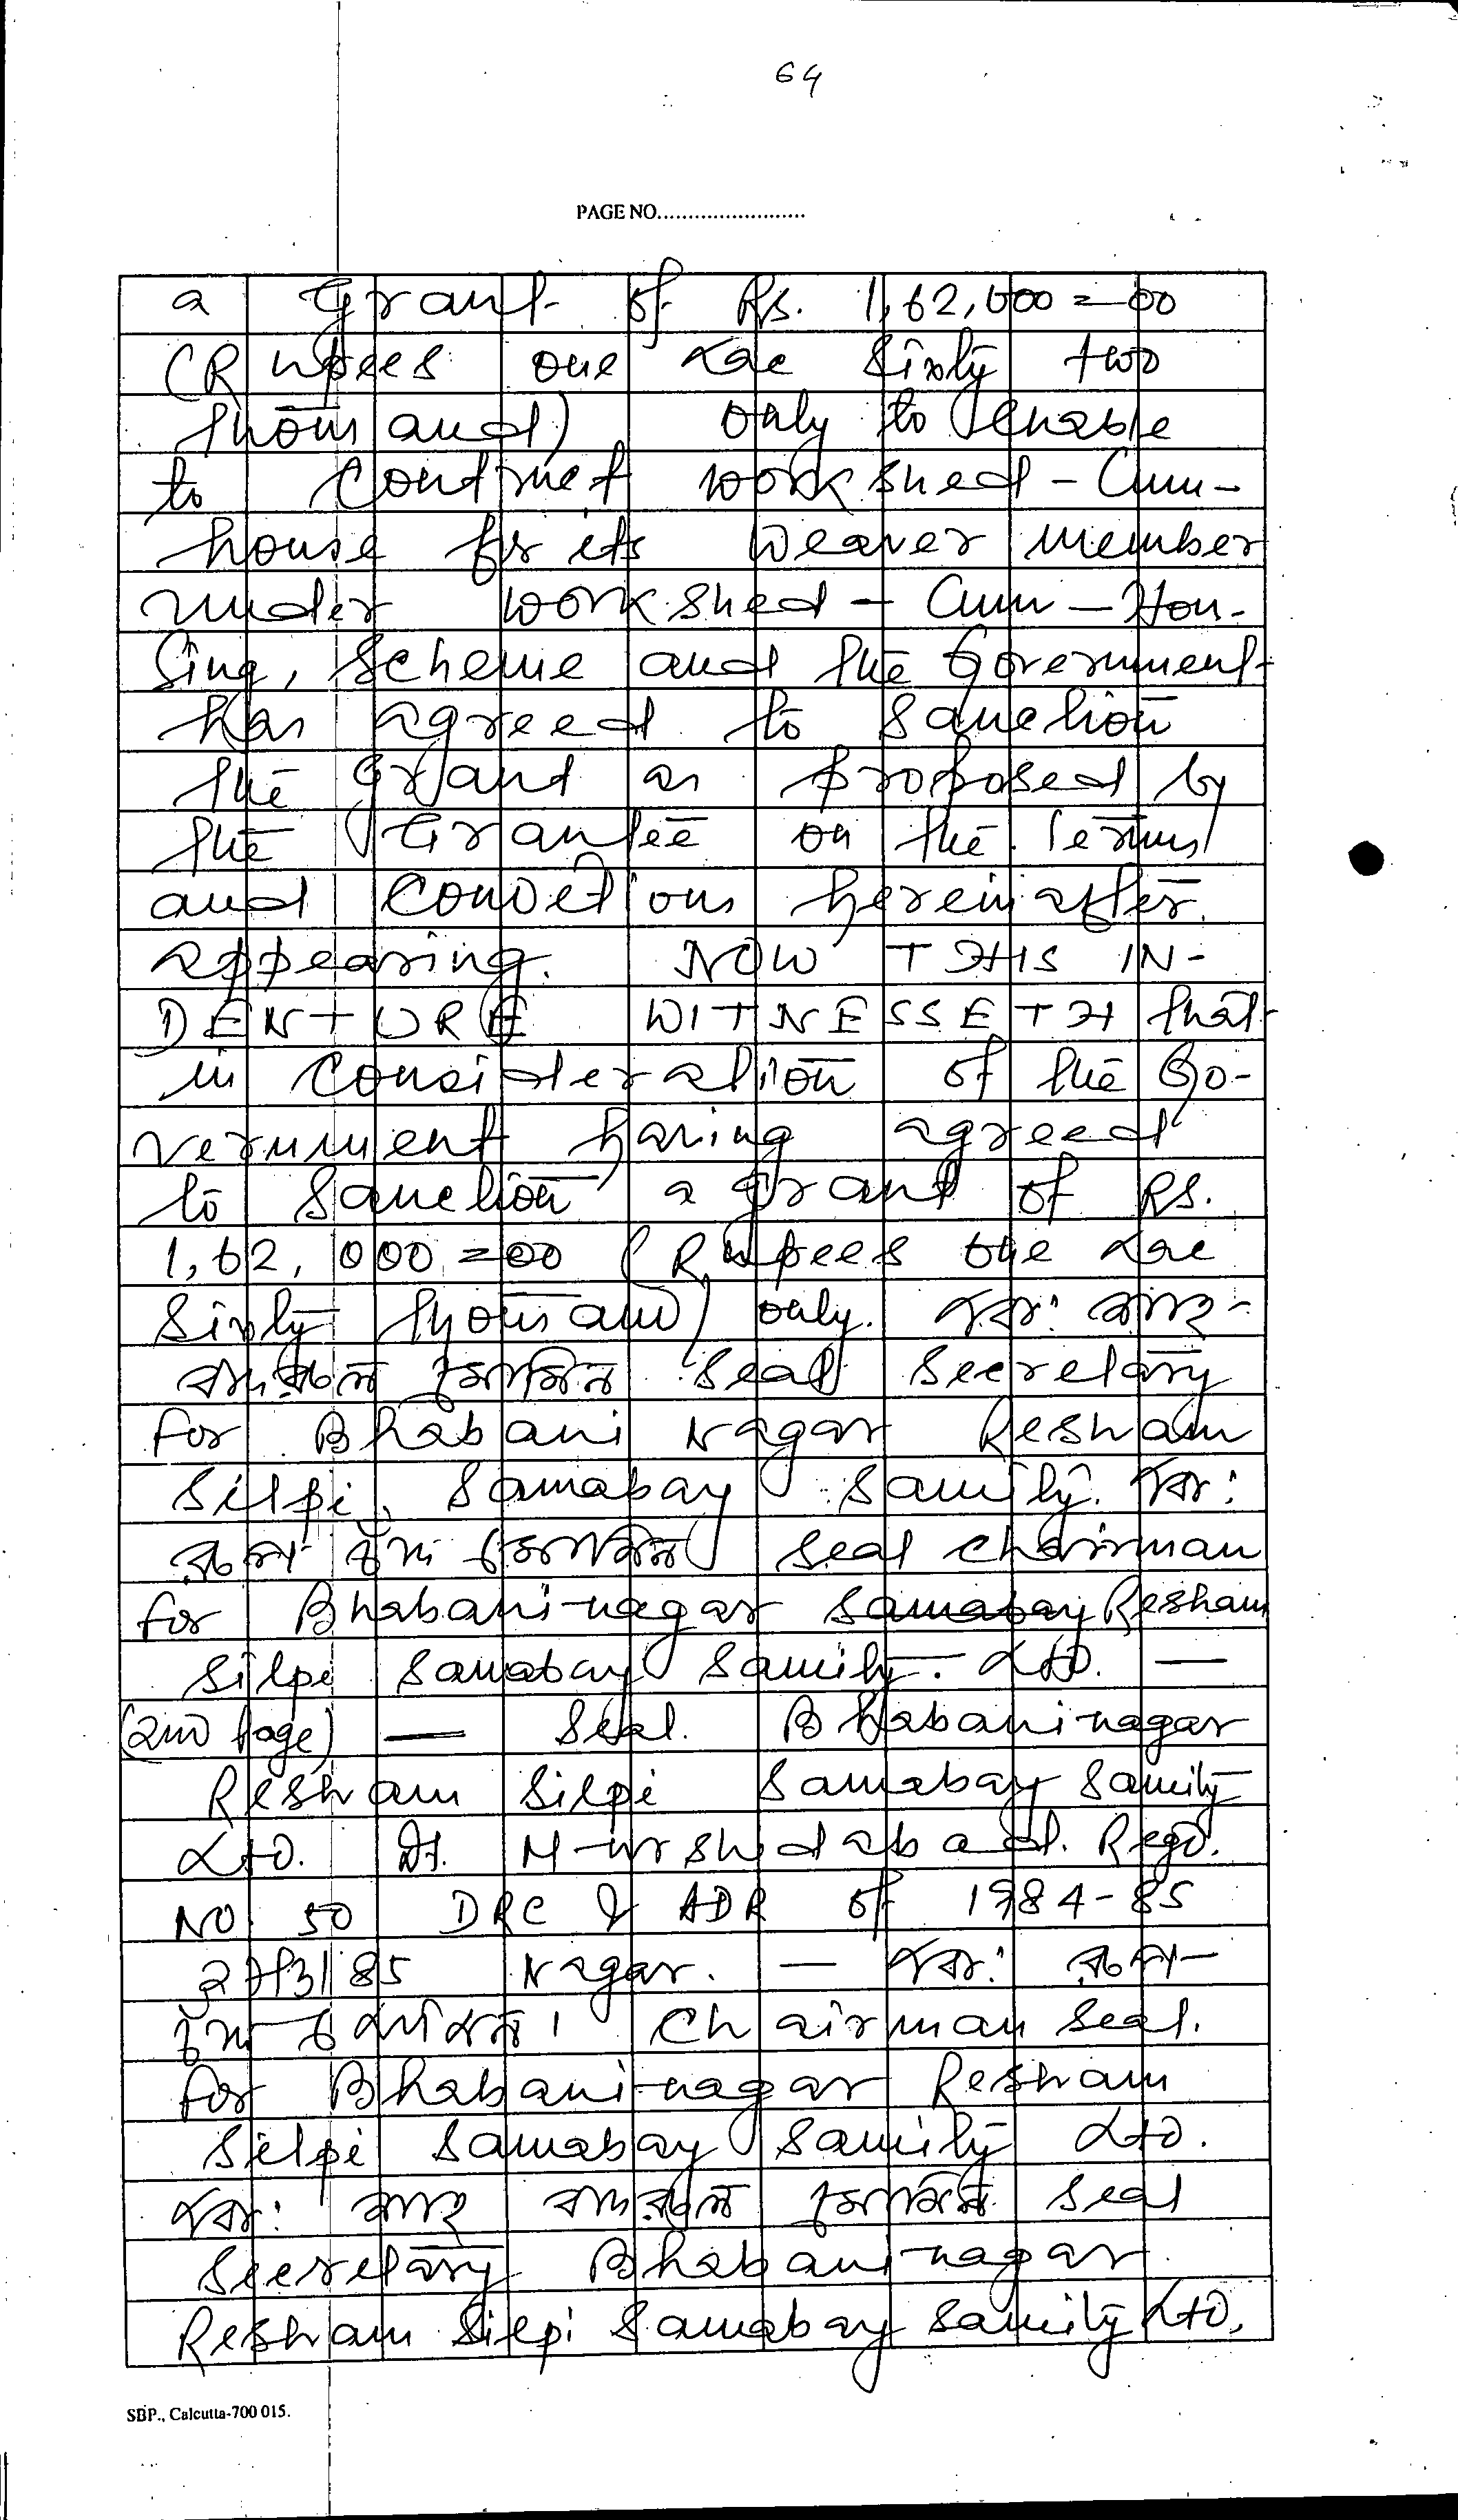 64
PAGE NO........................
a Grant of Rs. 1,62,000=00
(Rupees one Lac Sixty two
thousand) only to enable
to Contruct workshed-Cum-
house for its Weaver member
under workshed-Cum-Hou-
sing, Scheme and the Government
has agreed to Sanction
the grant as proposed by
the Grantee on the terms
and Condetions hereinafter
appearing. NOW THIS IN-
DENTURE WITNESSETH that
in Consideration of the Go-
vernment having agreed
to Sanction a grant of Rs.
1,62,000=00 (Rupees one Lac
Sixty thousand) only. স্বাঃ
Seal Secretary
for Bhabani Nagar Resham
Silpi Samabay Samity. স্বাঃ
Seal Chairman
for Bhabani-nagar Samabay Resham
Silpi Samabay Samity. Ltd. —
(2nd page) — Seal. Bhabaninagar
Resham Silpi Samabay Samity
Ltd. Dt. Murshidabad. Regd.
NO. 50 DRC & ADR of 1984-85
27/3/85 Nagar. — স্বাঃ
Chairman Seal.
for Bhabani-nagar Resham
Silpi Samabay Samity Ltd.
স্বাঃ Seal
Secretary Bhabani-nagar
Resham Silpi Samabay Samity Ltd.
SBP., Calcutta-700 015.